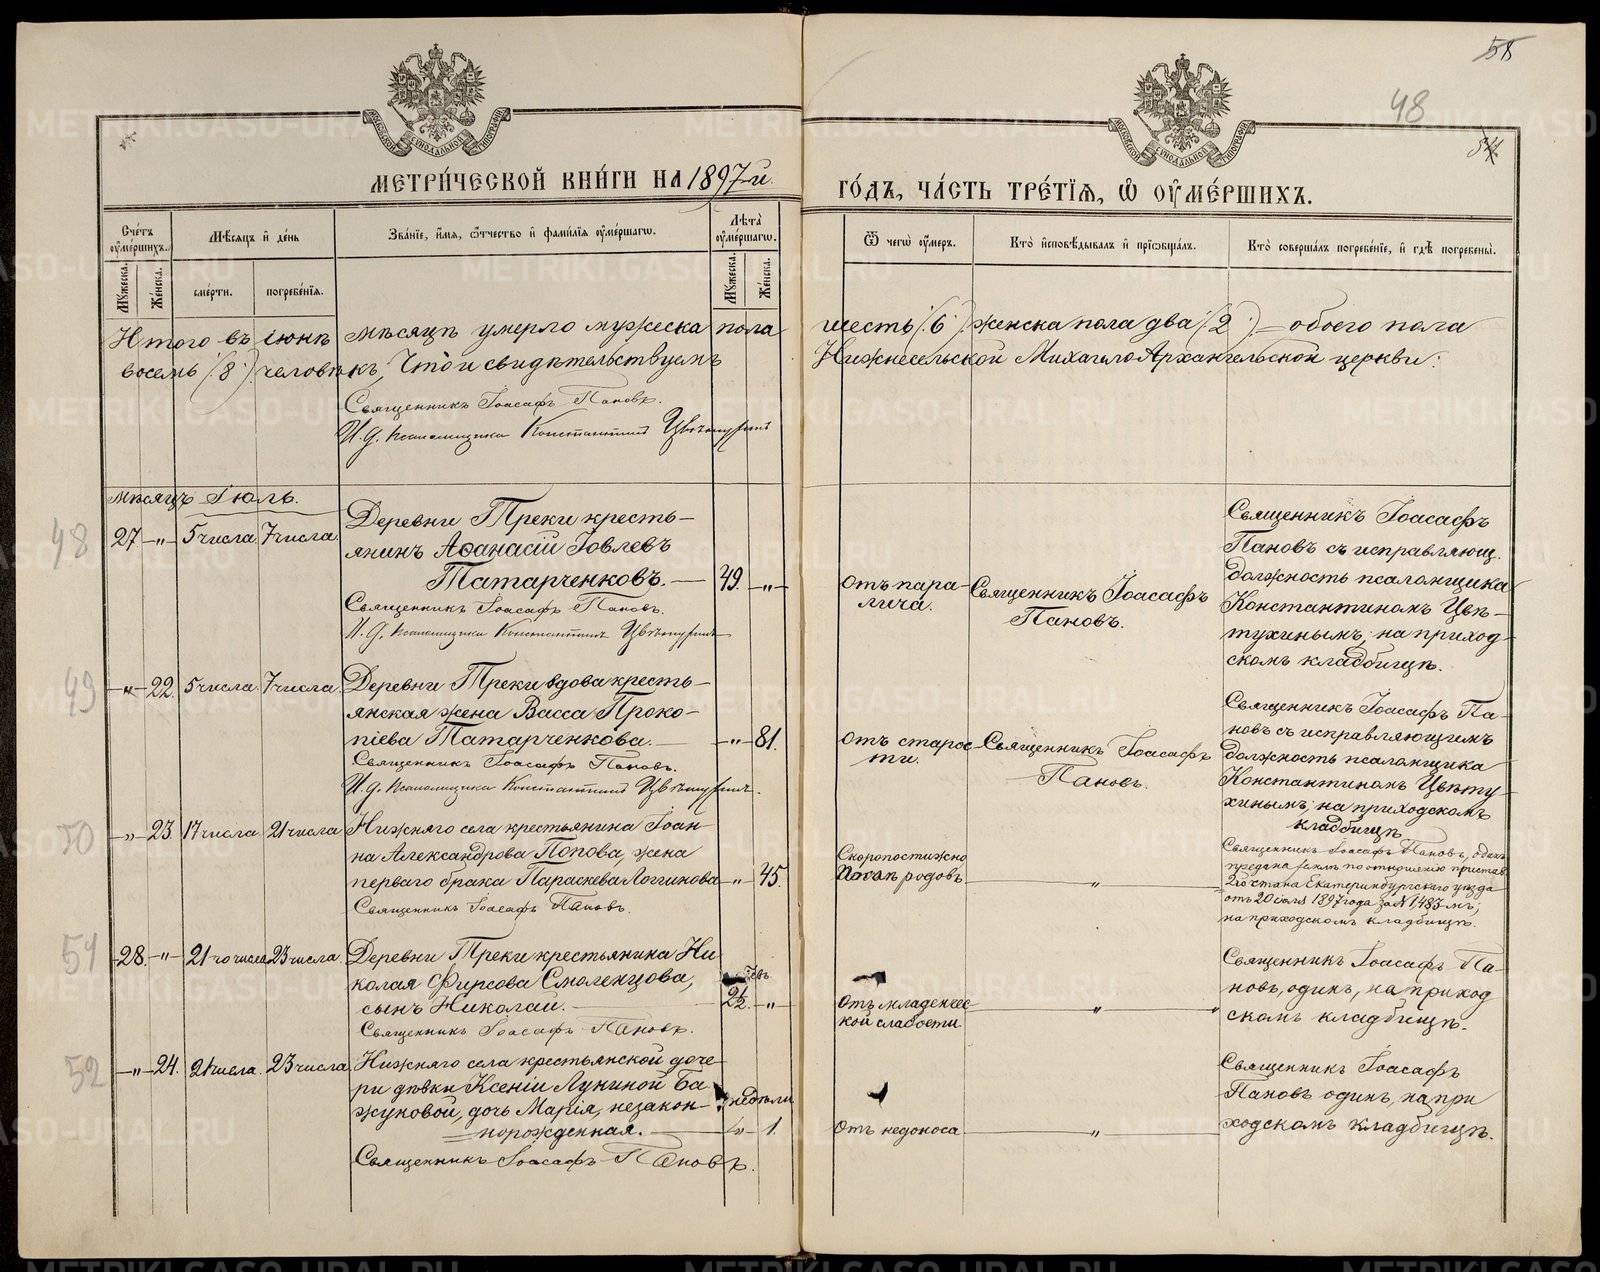 58
48
54
МЕТРИ́ЧЕСКОЙ КНИ́ГИ НА 1897й
ГО́ДЪ, ЧА́СТЬ ТРЕ́ТЇѦ, Ѽ ОУ҆МЕ́РШИХЪ.
Сче́тъ оу҆ме́ршихъ.
Мѣ́сяцъ и҆ де́нь
Зва́нїе, и҆́мя, ѻ҆́тчество и҆ фами́лїя оу҆ме́ршагѡ.
Лѣ́та оу҆ме́ршагѡ.
Ѿ чегѡ̀ оу҆́меръ.
Кто̀ и҆сповѣ́дывалъ и҆ прїѡбща́лъ.
Кто̀ соверша́лъ погребе́нїе, и҆ гдѣ̀ погребены̀.
Мꙋ́жеска.
Же́нска.
сме́рти.
погребе́нїя.
Мꙋ́жеска.
Же́нска.
Итого въ іюнѣ мѣсяцѣ умерло мужеска пола шесть (6) женска пола два (2) = обоего пола
восемь (8) человѣкъ; Что и свидѣтельствуемъ Нижнесельской Михаило Архангельской церкви:
Священникъ Іоасафъ Пановъ.
И. д. псаломщика Константинъ Цвѣтухинъ
мѣсяцъ Іюль.
48
27 - " - 5 числа 7 числа
Деревни Треки кресть-
янинъ Аѳанасій Іовлевъ
Татарченковъ. — 49. - " -
Священникъ Іоасафъ Пановъ.
И. д. псаломщика Константинъ Цвѣтухинъ
отъ пара-
лича.
Священникъ Іоасафъ
Пановъ.
Священникъ Іоасафъ
Пановъ съ исправляющ.
должность псаломщика
Константиномъ Цвѣ-
тухинымъ, на приход-
скомъ кладбищѣ.
49
- " - 22. 5 числа 7 числа
Деревни Треки вдова кресть-
янская жена Васса Проко-
піева Татарченкова. — - " - 81.
Священникъ Іоасафъ Пановъ.
И. д. псаломщика Константинъ Цвѣтухинъ.
отъ старос-
ти.
Священникъ Іоасафъ
Пановъ.
Священникъ Іоасафъ Па-
новъ съ исправляющимъ
должность псаломщика
Константиномъ Цвѣту-
хинымъ, на приходскомъ
кладбищѣ
50
- " - 23. 17 числа 21 числа
Нижняго села крестьянина Іоан-
на Александрова Попова, жена
перваго брака Параскева Логгинова - " - 45.
Священникъ Іоасафъ Пановъ.
Скоропостижно
послѣ родовъ
"
Священникъ Іоасафъ Пановъ, одинъ
предана землѣ по отношенію пристав.
2го стана Екатеринбургскаго уѣзда
отъ 20 іюля 1897 года за № 1,483-мъ;
на приходскомъ кладбищѣ.
51
28. - " - 21-го числа 23 числа.
Деревни Треки крестьянина Ни
колая Фирсова Смоленцова,
сынъ Николай. — "
Священникъ Іоасафъ Пановъ.
отъ младенчес-
кой слабости
"
Священникъ Іоасафъ Па-
новъ, одинъ, на приход
скомъ кладбищѣ.
52
- " - 24. 21 числа. 23 числа
Нижняго села крестьянской доче-
ри дѣвки Ксеніи Лукиной Ба
жуковой, дочь Марія, незакон- недѣли
норожденная. — - " - 1.
Священникъ Іоасафъ Пановъ.
отъ недоноса
"
Священникъ Іоасафъ
Пановъ одинъ, на при
ходскомъ кладбищѣ.